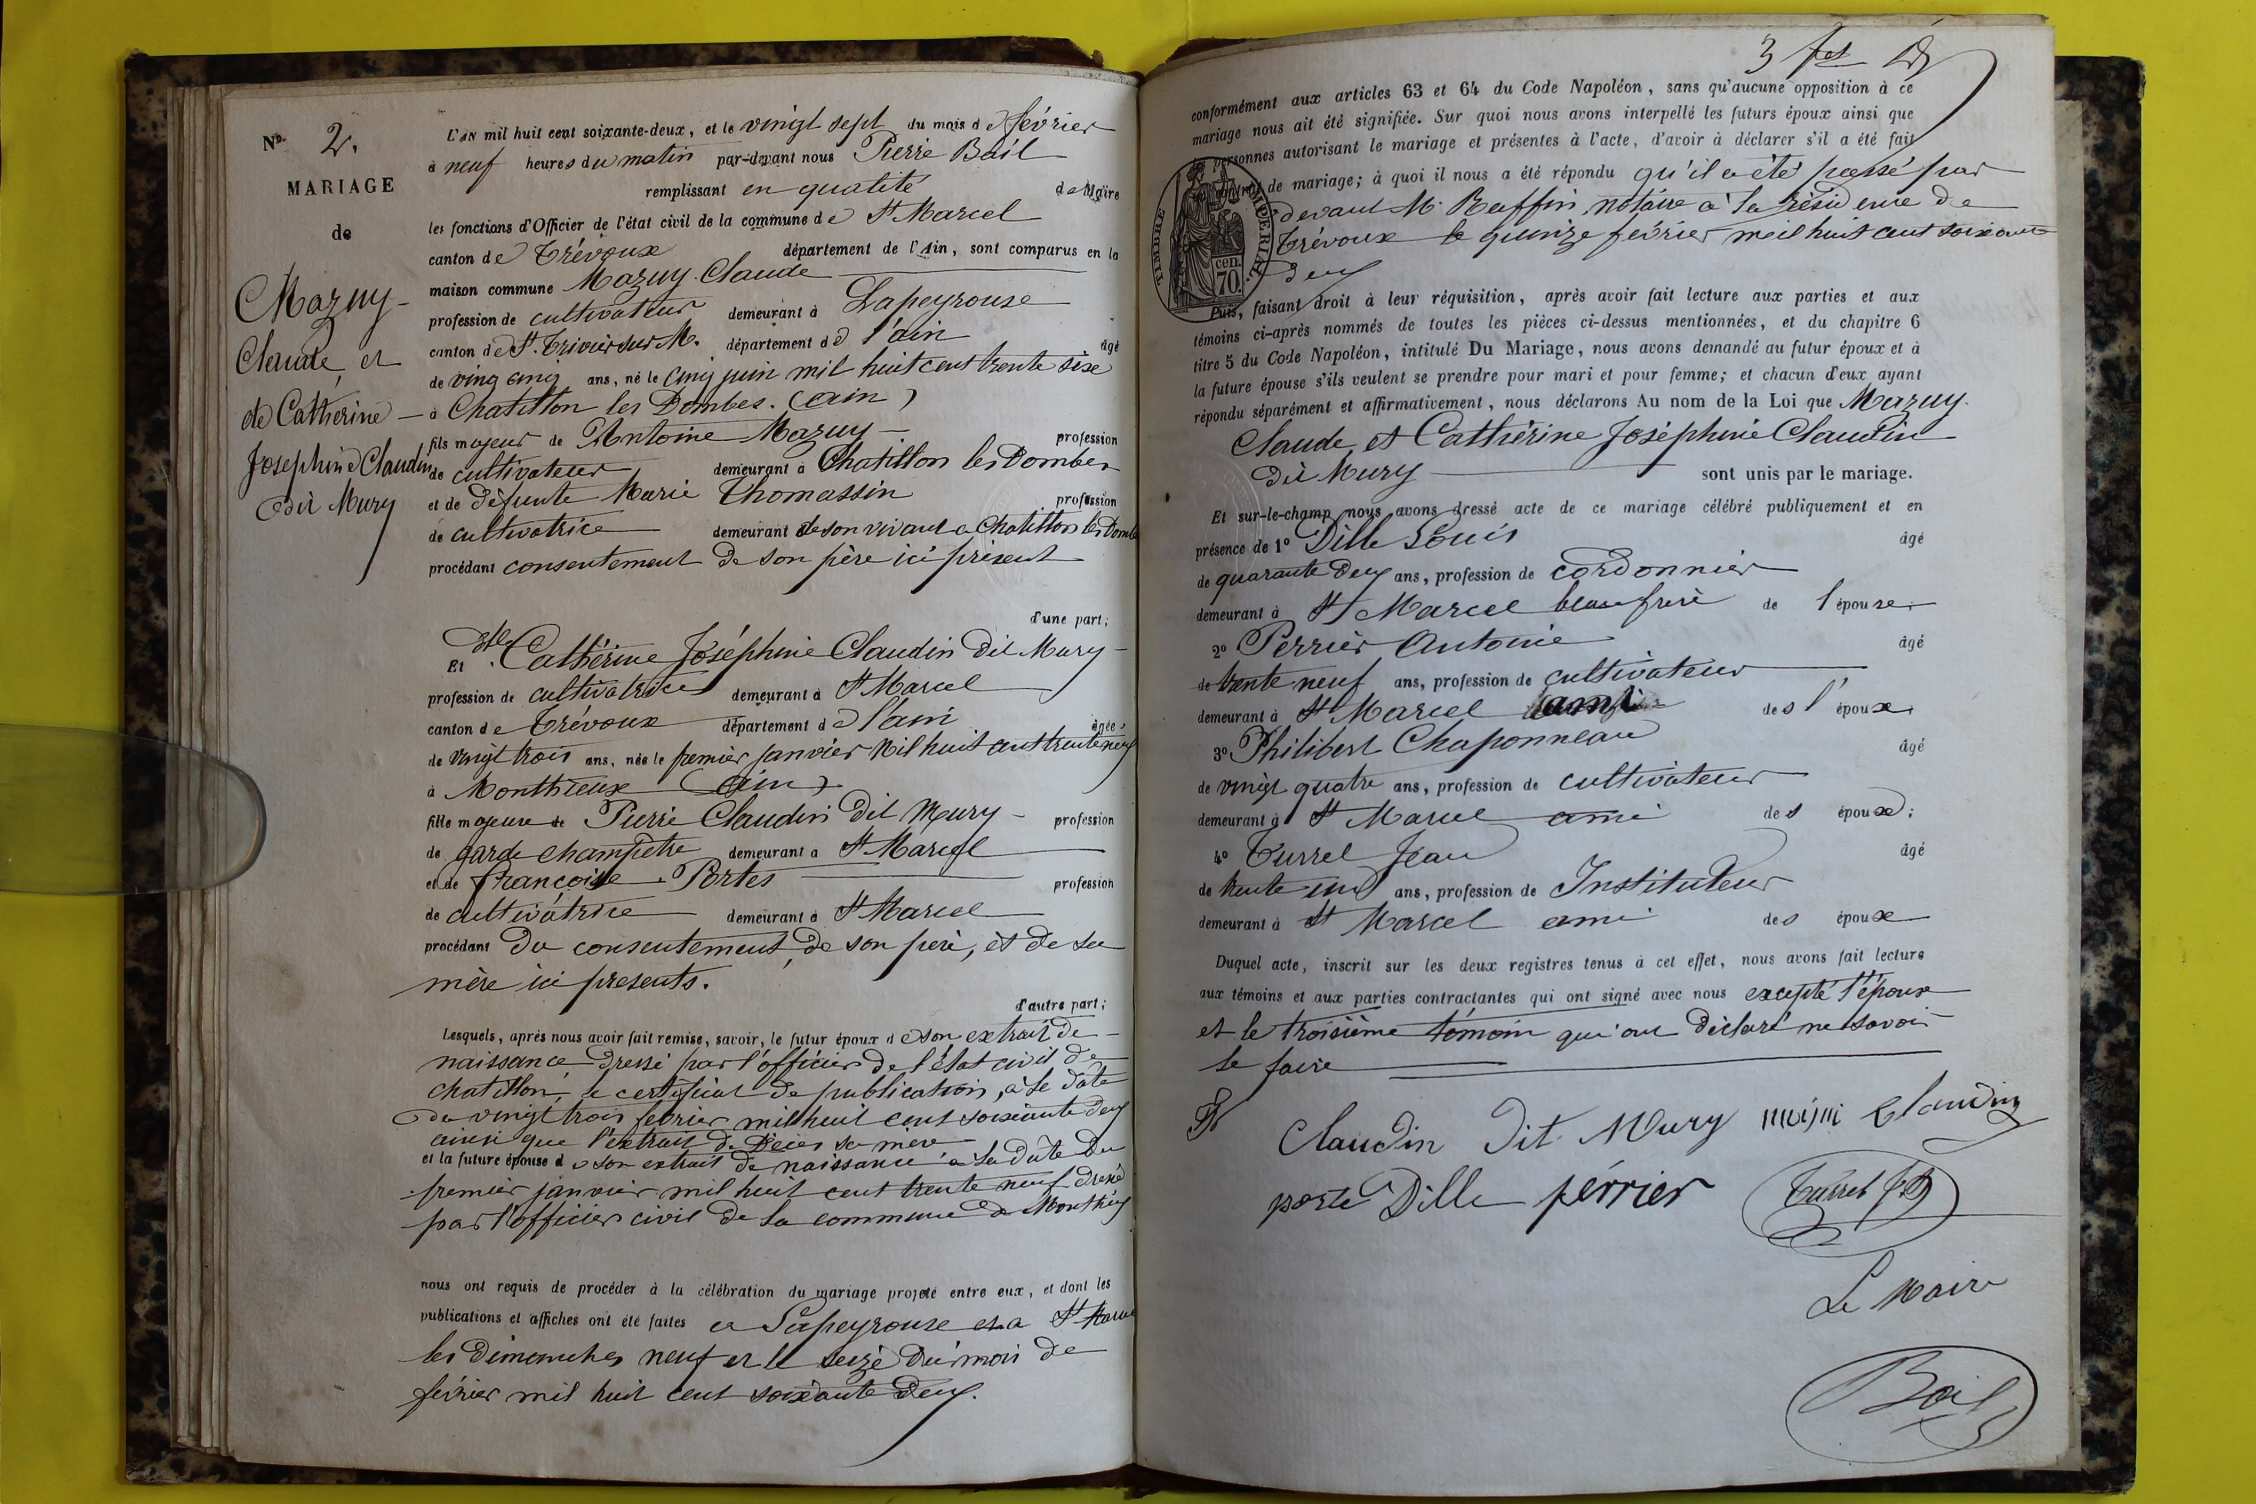 No. 2.
MARIAGE
de
Mazuy
Claude, et
de Catherine
Joséphine Claudin
dit Mury
L'AN mil huit cent soixante-deux, et le vingt sept du mois de février
à neuf heures du matin par-devant nous Pierre Bail
remplissant en qualité de Maire
les fonctions d'Officier de l'état civil de la commune de St Marcel
canton de Trévoux département de l'Ain, sont comparus en la
maison commune Mazuy Claude
profession de cultivateur demeurant à Lapeyrouse
canton de St. Trivier sur M. département de l'ain âgé
de ving cinq ans, né le cinq juin mil huit cent trente sixe
à Chatillon les Dombes. (ain)
fils majeur de Antoine Mazuy profession
de cultivateur demeurant à Chatillon les Dombes
et de défunte Marie Thomassin profession
de cultivatrice demeurant de son vivant a Chatillon les Dombe
procédant consentement de son père ici présent
d'une part;
Et dlle. Cathérine Joséphine Claudin dit Mury
profession de cultivatrice demeurant à St Marcel
canton de Trévoux département de l'ain âgée
de vingt trois ans, née le premier janvier mil huit cent trente neuf
à Monthieux (ain)
fille majeure de Pierre Claudin dit Mury profession
de garde champêtre demeurant à St Marcel
et de françoise Portes profession
de cultivatrice demeurant à St Marcel
procédant du consentement de son père, et de sa
mère ici presents.
d'autre part;
Lesquels, après nous avoir fait remise, savoir, le futur époux de son extrait de
naissance dressé par l'officier de l'état civil de
chatillon, le certificat de publication, à le date
du vingt trois février mil huit cent soixiante deux
ainsi que l'extrait de Décès sa mère
et la future épouse de son extrait de naissance à la date du
premier janvier mil huit cent trente neuf dressé
par l'officier civil de la commune de Monthieux
nous ont requis de procéder à la célébration du mariage projeté entre eux, et dont les
publications et affiches ont été faites à Lapeyrouse et a St Marcel
les dimanches neuf et le seize du mois de
février mil huit cent soixante deux.
3 fet
conformément aux articles 63 et 64 du Code Napoléon, sans qu'aucune opposition à ce
mariage nous ait été signifiée. Sur quoi nous avons interpellé les futurs époux ainsi que
les personnes autorisant le mariage et présentes à l'acte, d'avoir à déclarer s'il a été fait
contrat de mariage; à quoi il nous a été répondu qu'il a été passé par
devant M. Raffin, notaire à la résidence de
Trévoux le quinze février mil huit cent soixante
deux
TIMBRE IMPERIAL
70 cen.
Puis, faisant droit à leur réquisition, après avoir fait lecture aux parties et aux
témoins ci-après nommés de toutes les pièces ci-dessus mentionnées, et du chapitre 6
titre 5 du Code Napoléon, intitulé Du Mariage, nous avons demandé au futur époux et à
la future épouse s'ils veulent se prendre pour mari et pour femme; et chacun d'eux ayant
répondu séparément et affirmativement, nous déclarons Au nom de la Loi que Mazuy
Claude et Cathérine Joséphine Claudin
dit Mury sont unis par le mariage.
Et sur-le-champ nous avons dressé acte de ce mariage célébré publiquement et en
présence de 1º Dille Louis âgé
de quarante deux ans, profession de cordonnier
demeurant à St Marcel beau frère de l'épouse.
2º Perrier Antonie âgé
de trente neuf ans, profession de cultivateur
demeurant à St Marcel ami des l' époux.
3º Philibert Chaponneau âgé
de vingt quatre ans, profession de cultivateur
demeurant à St Marcel ami des époux;
4º Turrel Jean âgé
de trente un ans, profession de Instituteur
demeurant à St Marcel ami des époux
Duquel acte, inscrit sur les deux registres tenus à cet effet, nous avons fait lecture
aux témoins et aux parties contractantes qui ont signé avec nous excepté l'époux
et le troisième témoin qui ont déclaré ne savoir
le faire
Claudin dit Mury Claudin
porte Dille périer Turrel
Le Maire
Bail